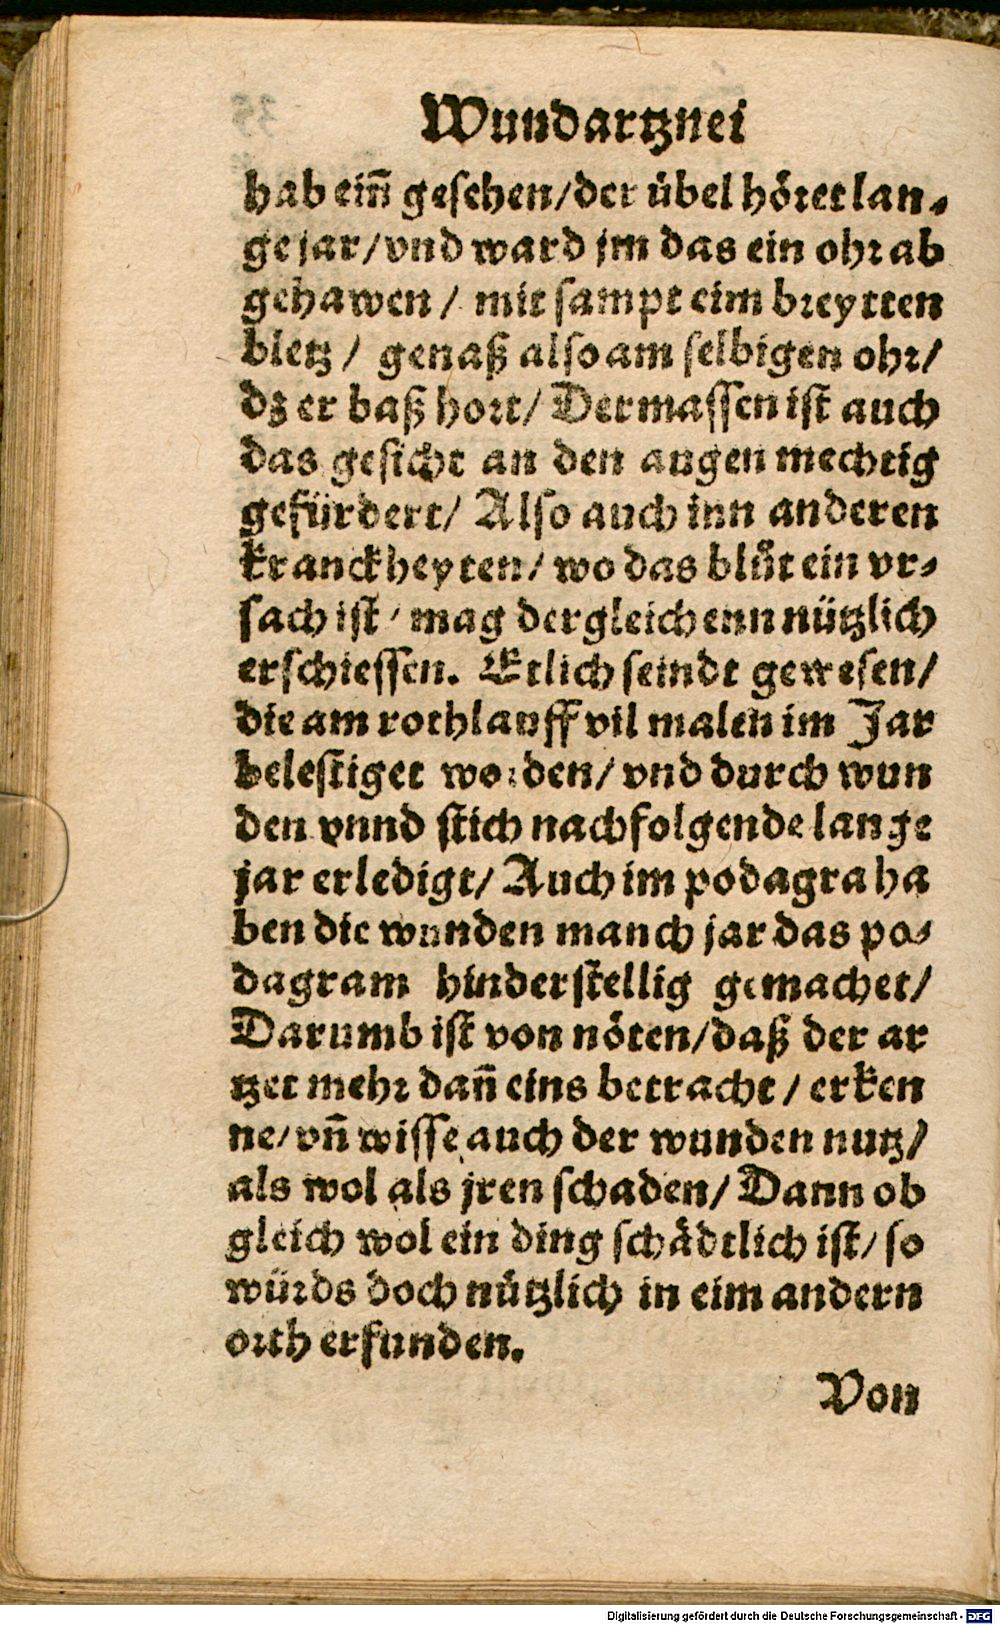 Wundartznei
hab ein̄ gesehen/der übel höret lan-
ge jar/vnd ward jm das ein ohr ab
gehawen/ mit sampt eim breytten
bletz/ genaß also am selbigen ohr/
dz er baß hort/ Dermassen ist auch
das gesicht an den augen mechtig
gefürdert/ Also auch inn anderen
kranckheyten/ wo das blůt ein vr-
sach ist/ mag dergleichenn nützlich
erschiessen. Etlich seindt gewesen/
die am rothlauff vil malen im Jar
belestiget worden/ vnd durch wun
den vnnd stich nachfolgende lange
jar erledigt/ Auch im podagra ha
ben die wunden manch jar das po-
dagram hinderstellig gemachet/
Darumb ist von nöten/daß der ar
tzet mehr dan̄ eins betracht/ erken
ne/vn̄ wisse auch der wunden nutz/
als wol als jren schaden/ Dann ob
gleich wol ein ding schädtlich ist/ so
würds doch nützlich in eim andern
orth erfunden.
Von
Digitalisierung gefördert durch die Deutsche Forschungsgemeinschaft - DFG